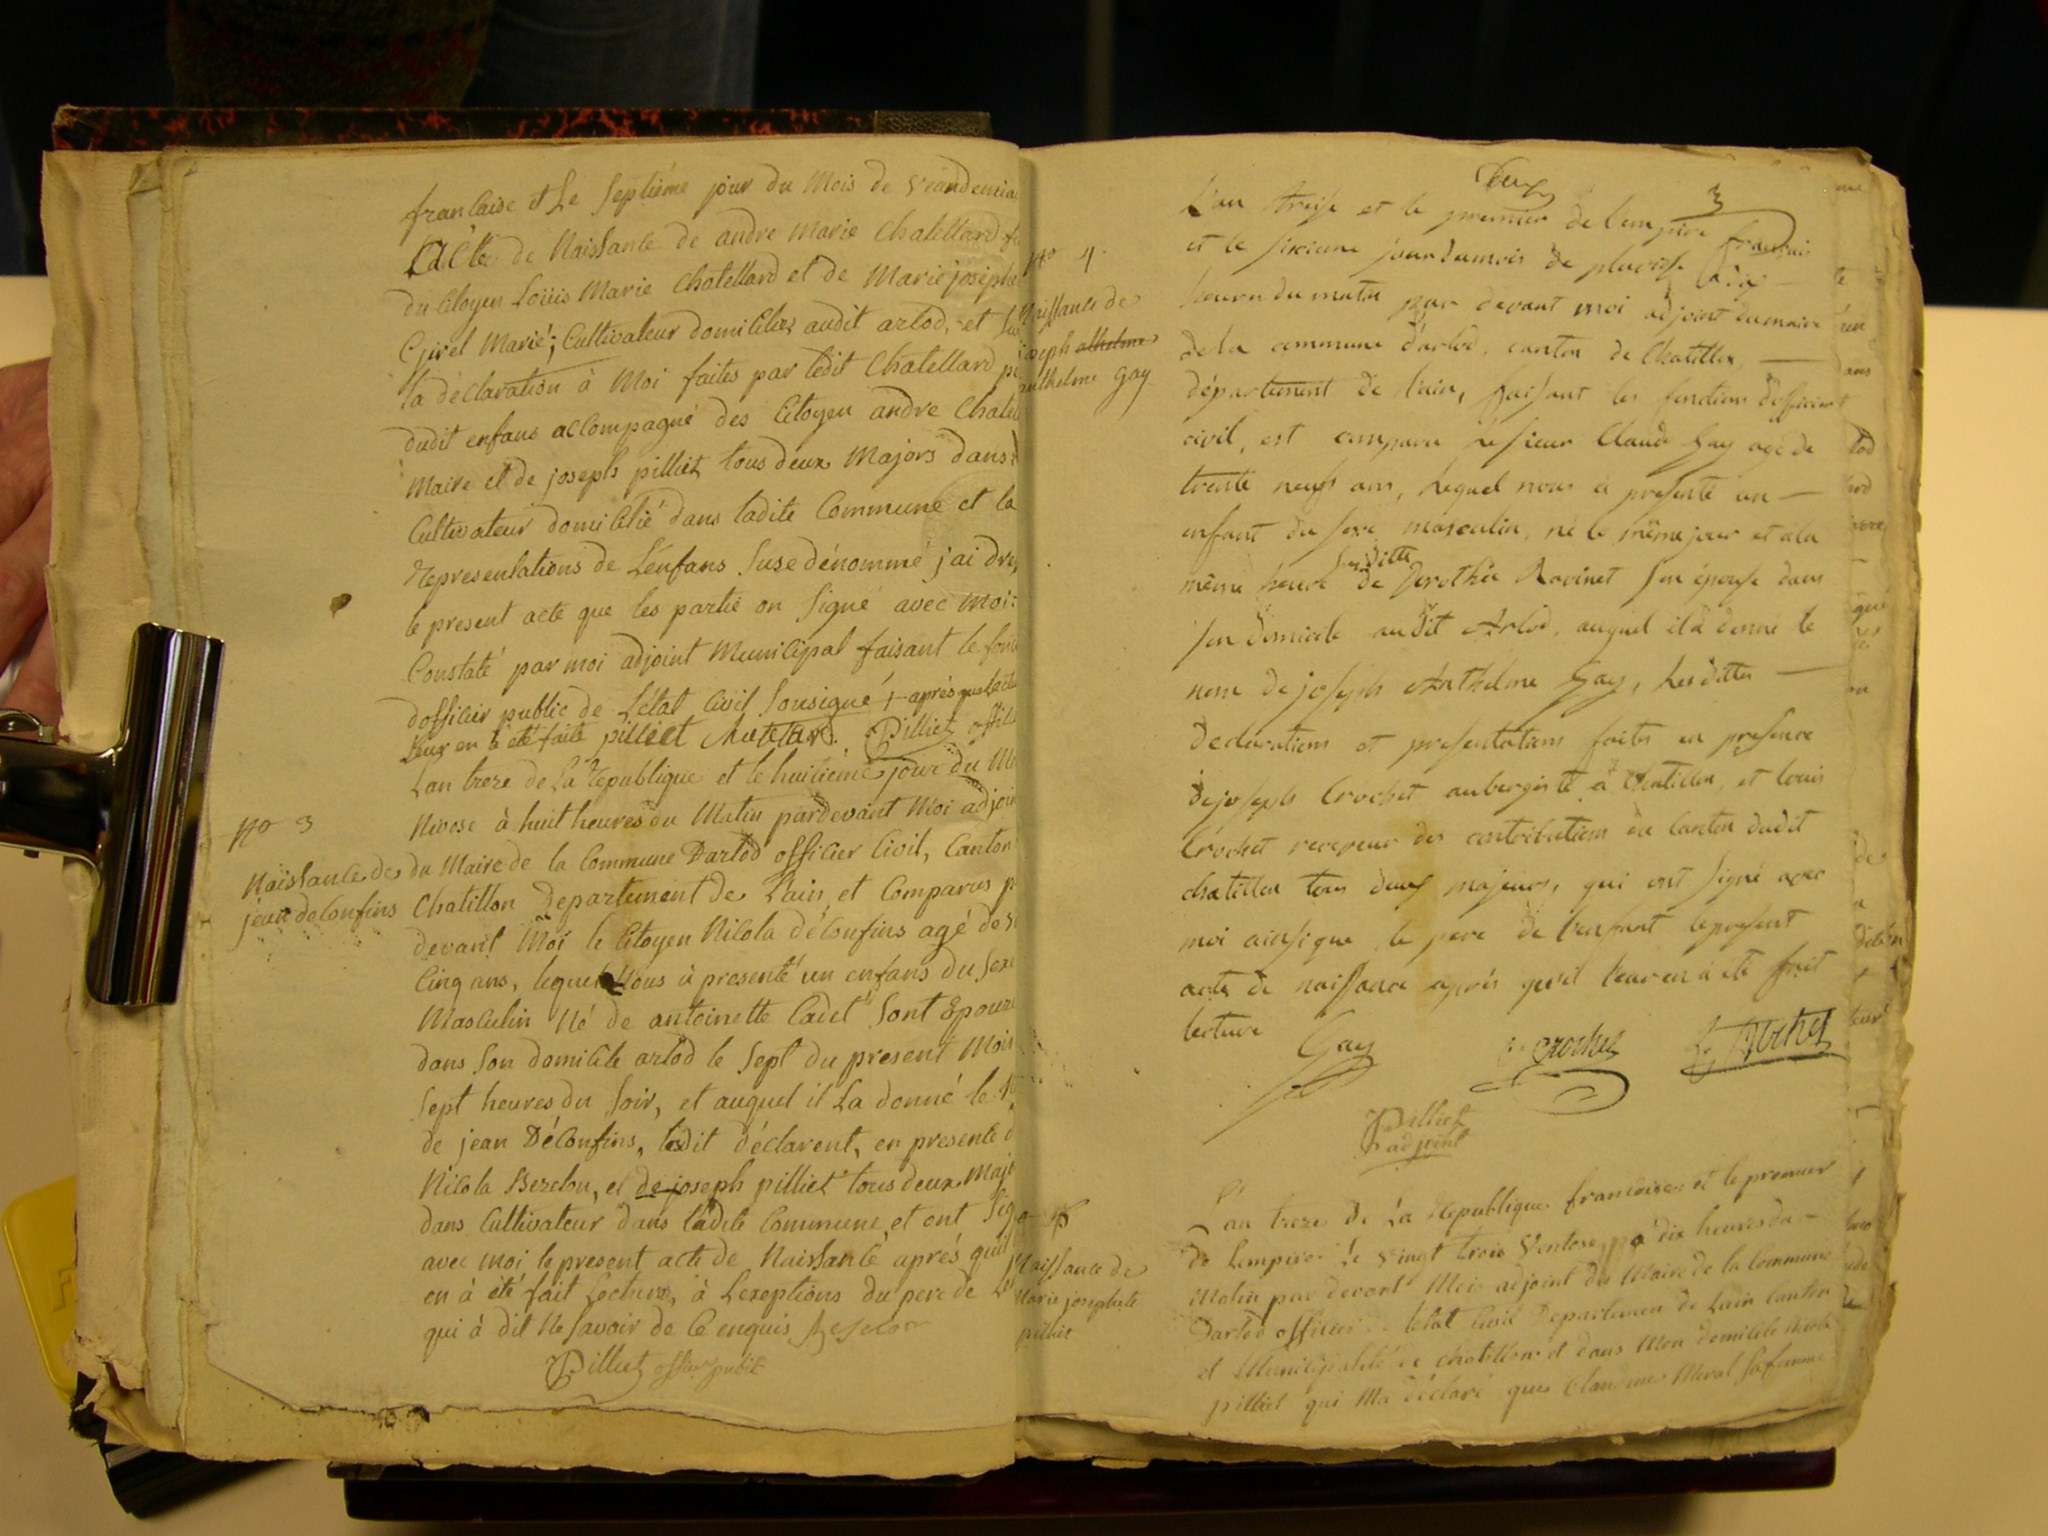 francaise et Le Septiéme jour du Mois de
L'acte de Naissance de andre Marie Chatellard
du Citoyen Loüis Marie Chatellard et de Marie josephe
Girel Marié; Cultivateur domiciliez audit arlod, et
la déclaration à Moi faites par ledit Chatellard
dudit enfans accompagné des Citoyen andre
Maire et de joseph pilliet tous deux Majors dans
Cultivateur domicilié dans ladite Commune et la
Representations de L'enfans Suse dénommé j'ai
le present acte que les partie on Signé avec Moi
Constaté par moi adjoint Municipal faisant le
d'officier public de L'état Civil Sousigné + après que
Leur en a été faite pilliet Chatelard. Pilliet
Lan treze de La Republique et le huitiéme jour du
No 3
Nivose à huit heures du Matin pardevant Moi
Naissance de
du Maire de la Commune Darlod officier Civil, Canton
jean deconfins
Chatillon Departement de Lain et Comparus
devant Moi le Citoyen Nicola déconfins agé de
Cinq ans, lequel Nous à presenté un enfans du Sexe
Masculin Né de antoinette Cadet Sont Epouze
dans Son domicile arlod le Sept du present Mois
Sept heures du Soir, et auquel il La donné le
de jean Déconfins, ledit déclarent, en presence
Nicola Berelou, et de joseph pilliet tous deux
dans Cultivateur dans ladite Commune, et ont
avec moi le present acte de Naissance aprés
en à été fait Lecture, à Lexeptions du pere de
qui à dit Ne Savoir de Ce enquis
Pilliet officier public
Deux
3
L'an treise et le premier de l'empire francais
No 4
et le sixieme jour du mois de pluviose à dix
Naissance de
heures du matin par devant moi adjoint du maire
joseph alhelme
de la commune d'arlod, canton de Chatillon,
anthelme Gay
département de l'ain, faisant les fonctions d'officier
civil, est comparu le sieur Claude Gay agé de
trente neuf ans, lequel nous a presenté un
enfant du sexe masculin, né le même jour et a la
même heure susditte de Dorothée Ravinet son épouse dans
son domicile au dit Arlod, auquel il a donné le
nom de joseph Anthelme Gay, les dittes
declarations et presentations faites en presence
de joseph Crochet aubergiste à Chatillon, et louis
Crochet receveur des contributions du Canton dudit
chatillon tous deux majeurs, qui ont signé avec
moi ainsi que le pere de l'enfant le present
acte de naissance aprés qu'il leur en a été fait
lecture Gay Crochet L. Crochet
Pilliet
adjoint
L'an treze de La Republique francaise et le premier
de Lempire Le vingt trois Ventose, à dix heures du
Naissance de
Matin par devant Moi adjoint du Maire de la Commune
Marie josephete
Darlod officier de letat Civil Departement de Lain Canton
pilliet
et Municipalité de chatillon et dans Mon domicile Nicola
pilliet qui Ma déclaré que Claudine Meral Sa femme